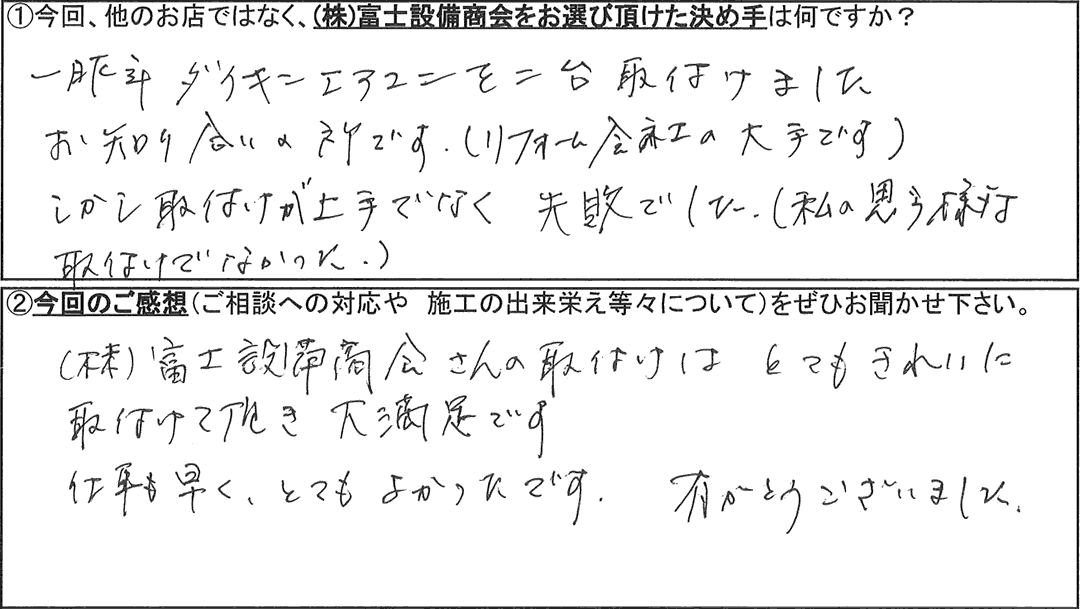 ①今回、他のお店ではなく、(株)富士設備商会をお選び頂けた決め手は何ですか？
一昨年 ダイキンエアコンを二台 取付けました
お知り合いの所です.(リフォーム会社の大手です)
しかし取付けが上手でなく 失敗でした.(私の思う様な
取付けでなかった.)
②今回のご感想(ご相談への対応や 施工の出来栄え等々について)をぜひお聞かせ下さい。
(株)富士設備商会さんの取付けは とてもきれいに
取付けて頂き 大満足です
仕事も早く、とてもよかったです. 有がとうございました.